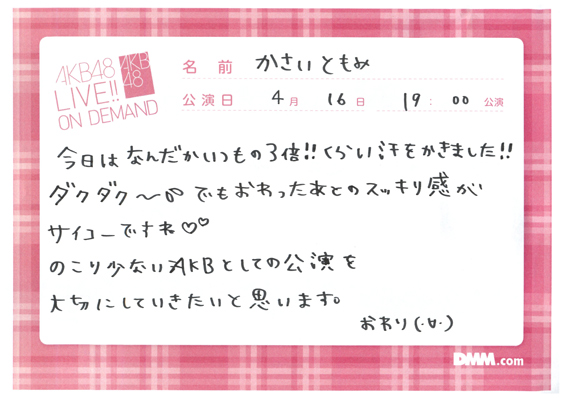 AKB48
LIVE!!
ON DEMAND
AKB
48
名前 かさいともみ
公演日 4月 16日 19:00 公演
今日はなんだかいつもの3倍!!くらい汗をかきました!!
ダクダク〜 でもおわったあとのスッキリ感が
サイコーですね♡♡
のこり少ないAKBとしての公演を
大切にしていきたいと思います。
おわり(·∀·)
DMM.com